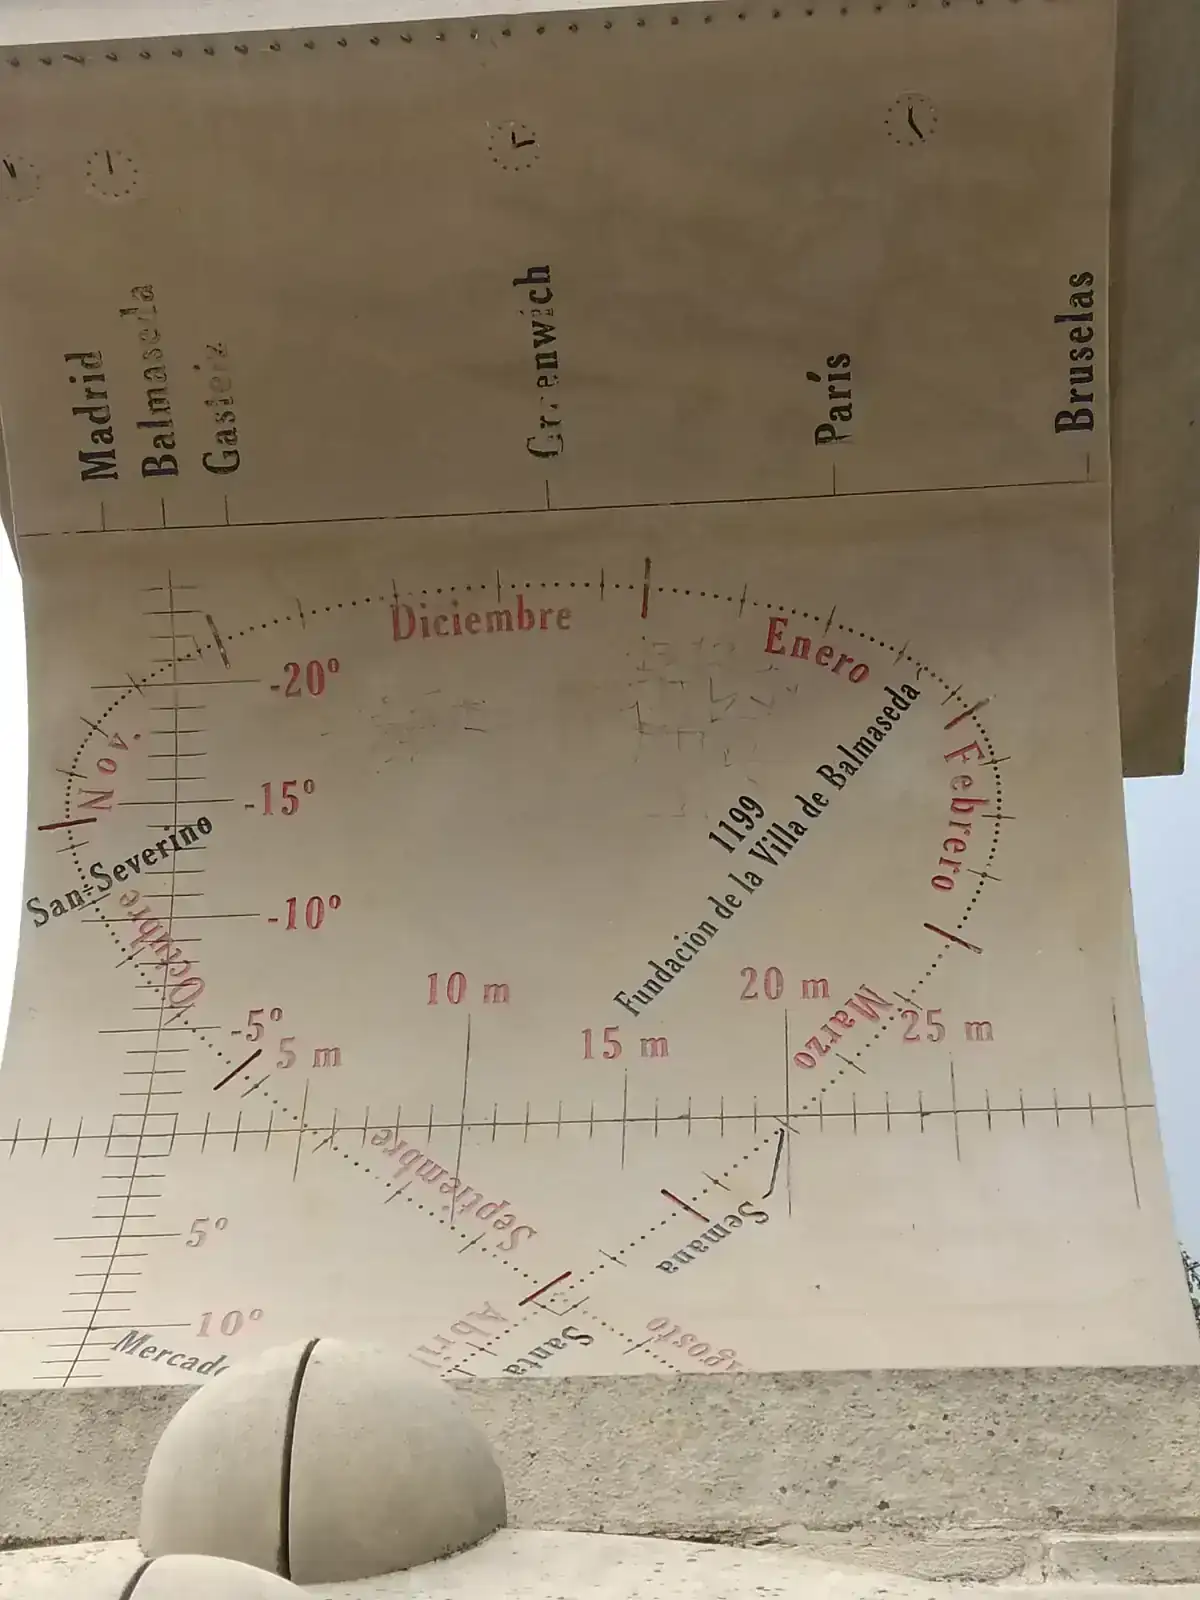 Madrid
Balmaseda
Gasteiz
Greenwich
París
Bruselas
Diciembre
Enero
-20º
Nov.
Febrero
-15º
San Severino
1199
Fundación de la Villa de Balmaseda
Octubre
-10º
10 m
20 m
Marzo
-5º
5 m
15 m
25 m
Septiembre
Semana
5º
Santa
Abril
Agosto
10º